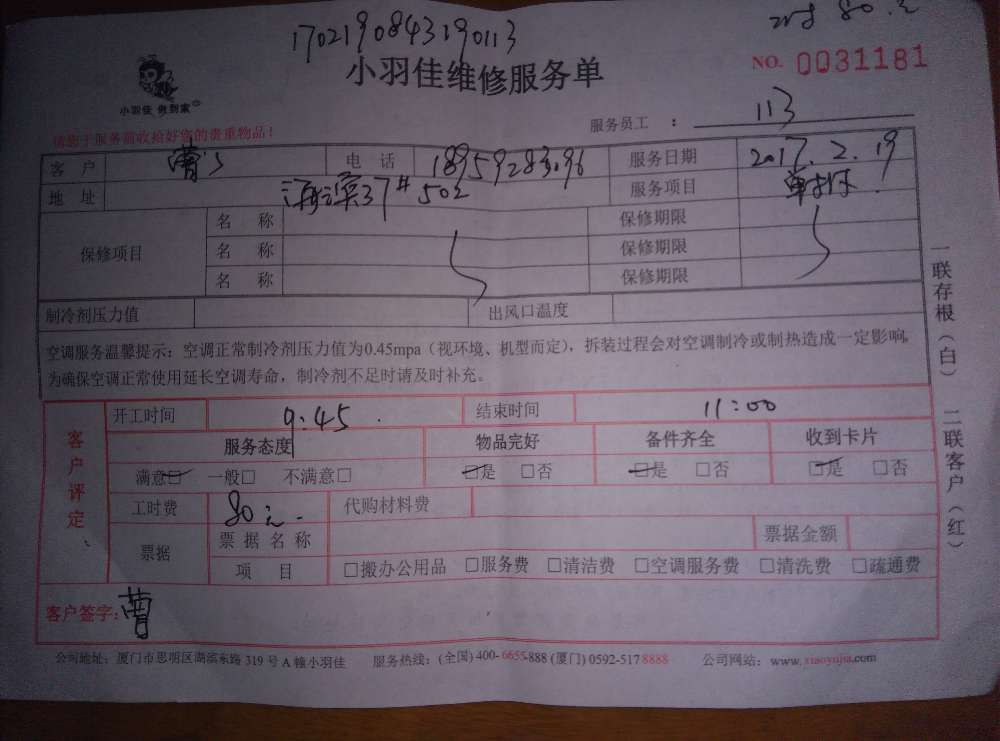 1702190843190113
80.元
小羽佳 做到家
小羽佳维修服务单
NO. 0031181
请您于服务前收拾好您的贵重物品!
服务员工 : 113
客 户 曹 电 话 18959283196 服务日期 2017.2.19
地 址 海滨37# 502 服务项目
保修项目 名 称 保修期限
名 称 保修期限
名 称 保修期限
制冷剂压力值 出风口温度
空调服务温馨提示:空调正常制冷剂压力值为0.45mpa(视环境、机型而定),拆装过程会对空调制冷或制热造成一定影响,
为确保空调正常使用延长空调寿命,制冷剂不足时请及时补充。
客户评定、
开工时间 9:45 结束时间 11:00
服务态度 物品完好 备件齐全 收到卡片
满意□ 一般□ 不满意□ □是 □否 □是 □否 □是 □否
工时费 80元 代购材料费
票据 票据名称 票据金额
项 目 □搬办公用品 □服务费 □清洁费 □空调服务费 □清洗费 □疏通费
客户签字: 曹
公司地址:厦门市思明区湖滨东路 319 号 A 幢小羽佳 服务热线:(全国) 400-6655-888 (厦门) 0592-5178888 公司网站:www.xiaoyujia.com
一联存根(白) 二联客户(红)